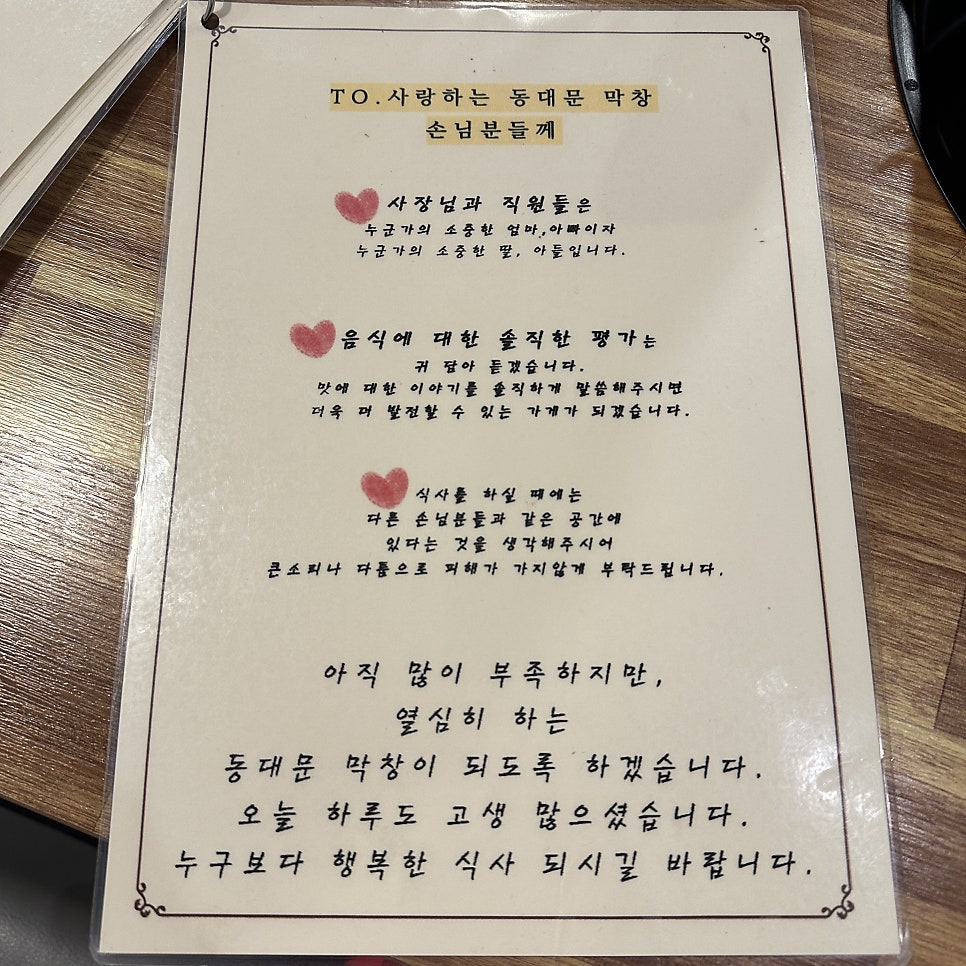 TO.사랑하는 동대문 막창
손님분들께
사장님과 직원들은
누군가의 소중한 엄마,아빠이자
누군가의 소중한 딸, 아들입니다.
음식에 대한 솔직한 평가는
귀 담아 듣겠습니다.
맛에 대한 이야기를 솔직하게 말씀해주시면
더욱 더 발전할 수 있는 가게가 되겠습니다.
식사를 하실 때에는
다른 손님분들과 같은 공간에
있다는 것을 생각해주시어
큰소리나 다툼으로 피해가 가지않게 부탁드립니다.
아직 많이 부족하지만,
열심히 하는
동대문 막창이 되도록 하겠습니다.
오늘 하루도 고생 많으셨습니다.
누구보다 행복한 식사 되시길 바랍니다.